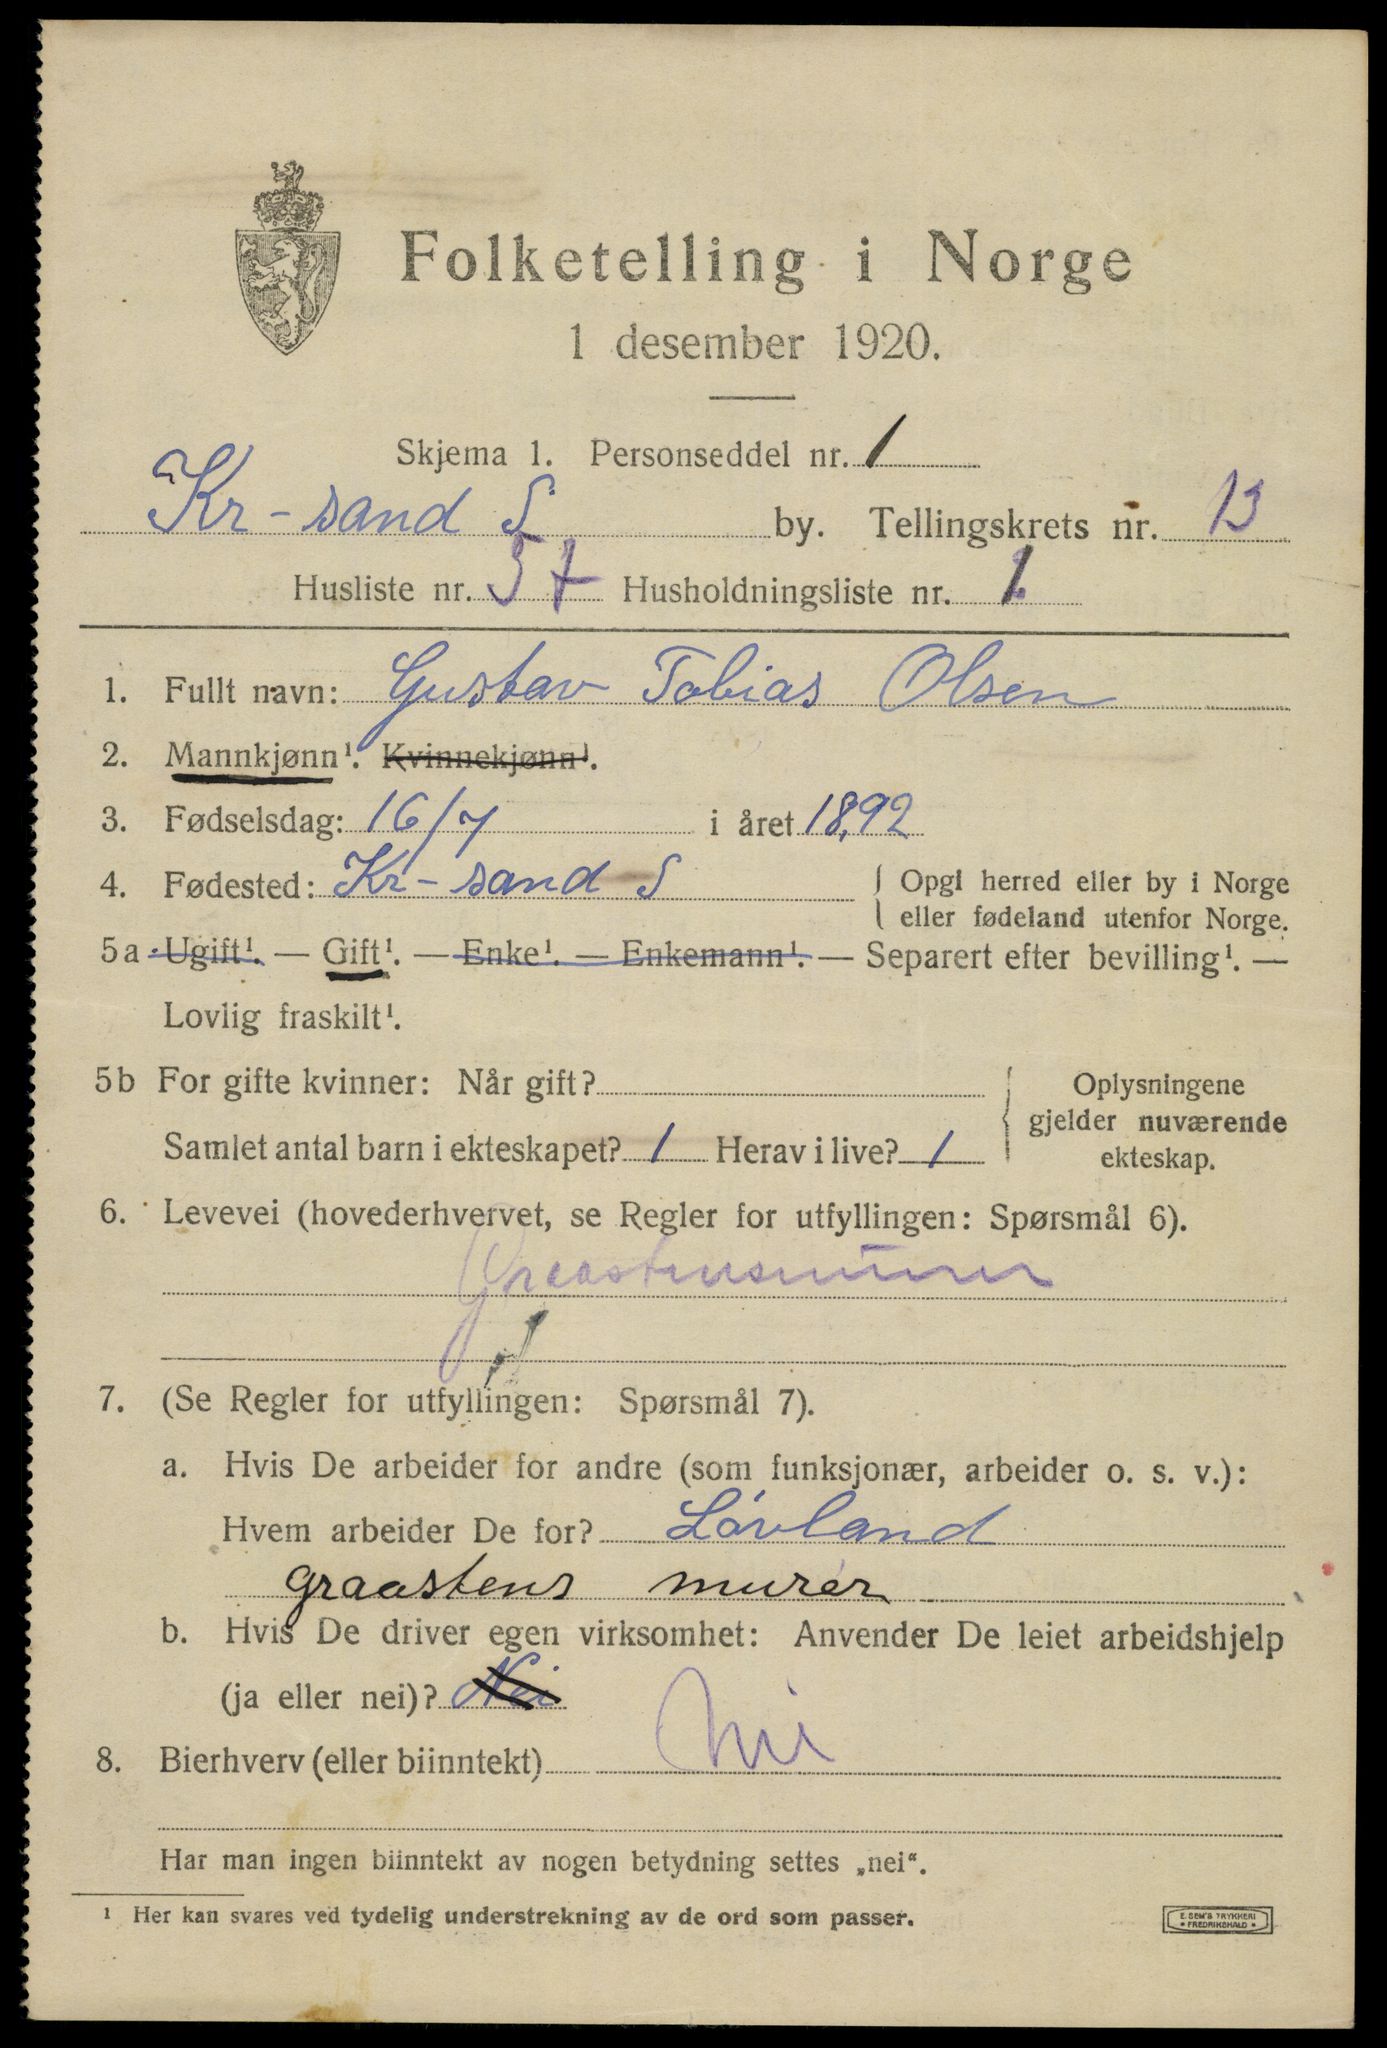 Folketelling i Norge
1 desember 1920.
Skjema 1. Personseddel nr. 1
Kr-sand S by. Tellingskrets nr. 13
Husliste nr. 57 Husholdningsliste nr. 1
1. Fullt navn: Gustav Tobias Olsen
2. Mannkjønn¹. Kvinnekjønn¹.
3. Fødselsdag: 16/7 i året 1892
4. Fødested: Kr-sand S { Opgi herred eller by i Norge
eller fødeland utenfor Norge.
5a Ugift¹. — Gift¹. — Enke¹. — Enkemann¹. — Separert efter bevilling¹. —
Lovlig fraskilt¹.
5b For gifte kvinner: Når gift?
Samlet antal barn i ekteskapet? 1 Herav i live? 1
{ Oplysningene
gjelder nuværende
ekteskap.
6. Levevei (hovederhvervet, se Regler for utfyllingen: Spørsmål 6).
Graastensmurer
7. (Se Regler for utfyllingen: Spørsmål 7).
a. Hvis De arbeider for andre (som funksjonær, arbeider o. s. v.):
Hvem arbeider De for? Lóvland
graastens murer
b. Hvis De driver egen virksomhet: Anvender De leiet arbeidshjelp
(ja eller nei)? Nei
8. Bierhverv (eller biinntekt) Nei
Har man ingen biinntekt av nogen betydning settes „nei“.
¹ Her kan svares ved tydelig understrekning av de ord som passer.
E. SEM'S TRYKKERI
* FREDRIKSHALD *